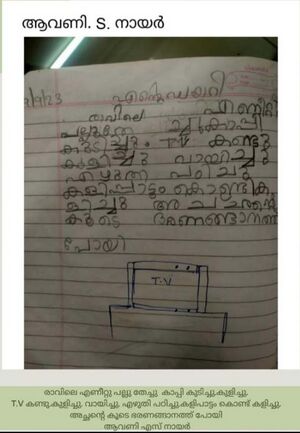 ആവണി. S. നായർ
2/9/23
എന്റെ ഡയറി
രാവിലെ എണീറ്റു
പല്ലുതേ ച്ചു കാപ്പി
കുടിച്ചു. TV കണ്ടു
കുളിച്ചു വായിച്ചു
എഴുതി പഠിച്ചു
കളിപ്പാട്ടം കൊണ്ട് ക
ളിച്ചു അച്ചന്റെ
കൂടെ ഭരണങ്ങാനത്ത്
പോയി
T.V
രാവിലെ എണീറ്റു പല്ലു തേച്ചു കാപ്പി കുടിച്ചു.കുളിച്ചു.
T.V കണ്ടു.കുളിച്ചു. വായിച്ചു. എഴുതി പഠിച്ചു.കളിപാട്ടം കൊണ്ട് കളിച്ചു.
അച്ഛന്റെ കൂടെ ഭരണങ്ങാനത്ത് പോയി
ആവണി എസ് നായർ